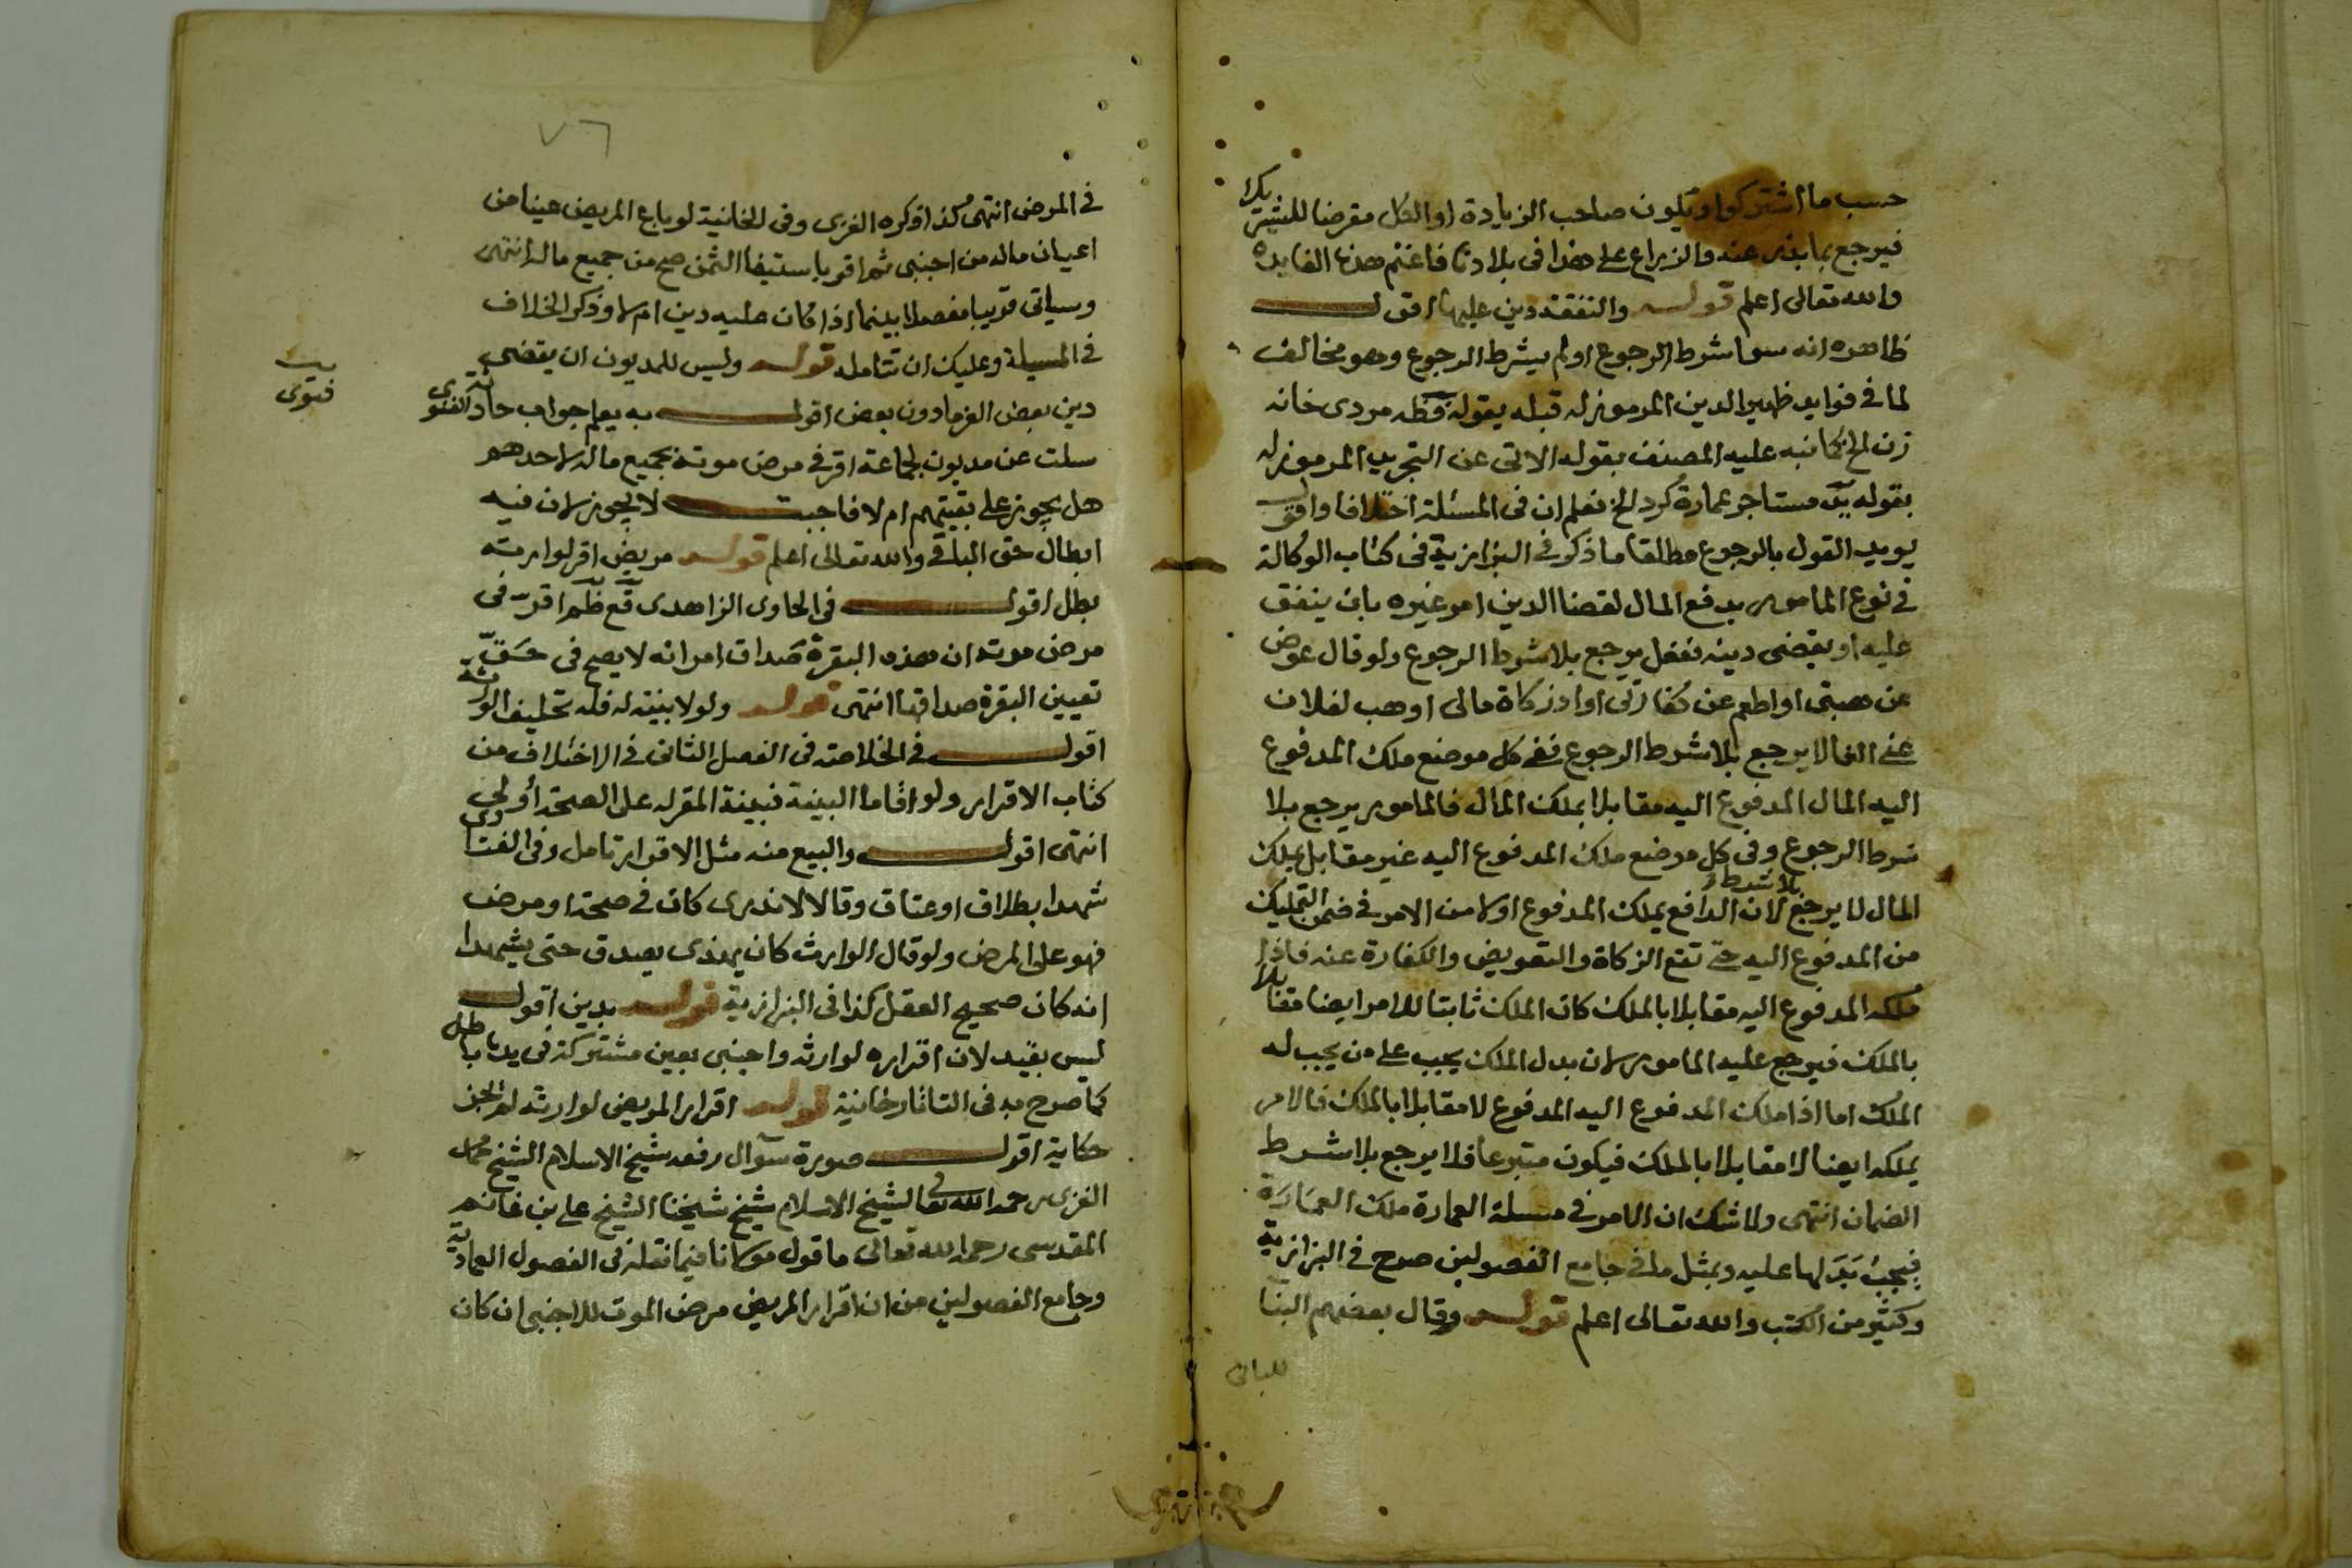 حسب ما اشتركوا ويكون صاحب الزيادة او الكل مقرضا للشريك
فيرجع بما بذر عنه والزراع على هذا في بلادنا فاغتنم هذه الفايده
والله تعالى اعلم قوله والنفقة دين عليها اقول
ظاهره انه سوا شرط الرجوع او لم يشرط الرجوع وهو مخالف
لما في فوايد ظهير الدين المرموز له قبله بقوله فظه مردى خانه
زن الخ كما نبه عليه المصنف بقوله الاتي عن التجريد المرموز له
بقوله مستاجر عمارة كرد الخ فعلم ان في المسئلة اختلافا واقول
يويد القول بالرجوع مطلقا ما ذكر في البزازية في كتاب الوكالة
في نوع المامور بدفع المال لقضا الدين امر غيره بان ينفق
عليه او يقضى دينه ففعل يرجع بلا شرط الرجوع ولو قال عوض
عن هبتى او اطعم عن كفارتى او اد زكاة مالى او هب لفلان
عنى الفا لا يرجع بلا شرط الرجوع ففى كل موضع ملك المدفوع
اليه المال المدفوع اليه مقابلا بملك المال فالمامور يرجع بلا
شرط الرجوع وفى كل موضع ملك المدفوع اليه غير مقابل بملك
المال لا يرجع بلا شرط لان الدافع يملك المدفوع اولا من الامر في ضمن التمليك
من المدفوع اليه حتى تقع الزكاة والتعويض والكفارة عنه فاذا
ملكه المدفوع اليه مقابلا بالملك كان الملك ثابتا للامر ايضا مقابلا
بالملك فيرجع عليه المامور لان بدل الملك يجب على من يجب له
الملك اما اذا ملك المدفوع اليه المدفوع لا مقابلا بالملك فالامر
يملكه ايضا لا مقابلا بالملك فيكون متبرعا فلا يرجع بلا شرط
الضمان انتهى ولا شك ان الامر في مسئلة العمارة ملك العمارة
فيجب بدلها عليه وبمثل ما في جامع الفصولين صرح في البزازية
وكثير من الكتب والله تعالى اعلم قوله وقال بعضهم البنا
للبانى
٧٦
في المرض انتهى كذا ذكره الغزى وفى الخانية لو باع المريض عينا من
اعيان ماله من اجنبى ثم اقر باستيفا الثمن صح من جميع ماله انتهى
وسياتى قريبا مفصلا بينما اذا كان عليه دين ام لا وذكر الخلاف
في المسيلة وعليك ان تتامله قوله وليس للمديون ان يقضى
دين بعض الغرما دون بعض اقول به يعلم جواب حادثة الفتوى
فتوى
سئلت عن مديون لجماعة اقر في مرض موته بجميع ماله لاحدهم
هل يجوز على بقيتهم ام لا فاجبت لا يجوز لان فيه
ابطال حق الباقى والله تعالى اعلم قوله مريض اقر لوارثه
بطل اقول في الحاوى الزاهدى قع ظم اقر في
مرض موته ان هذه البقرة صداق امراته لا يصح في حق
تعيين البقرة صداقها انتهى قوله ولو لا بينة له فله تحليف الورثة
اقول في الخلاصة في الفصل الثانى في الاختلاف من
كتاب الاقرار ولو اقاما البينة فبينة المقر له على الصحة أولى
انتهى اقول والبيع منه مثل الاقرار تامل وفى الفتاوى
شهدا بطلاق او عتاق وقالا لا ندرى كان في صحة او مرض
فهو على المرض ولو قال الوارث كان يهذى يصدق حتى يشهدا
انه كان صحيح العقل كذا في البزازية قوله بدين اقول
ليس بقيد لان اقراره لوارثه واجنبى بعين مشتركة في يدنا باطل
كما صرح به في التاتارخانية قوله اقرار المريض لوارثه لم يجز
حكاية اقول صورة سؤال رفعه شيخ الاسلام الشيخ محمد
الغزى رحمه الله تعالى لشيخ الاسلام شيخ شيخنا الشيخ على بن غانم
المقدسى رحمه الله تعالى ما قول مولانا فيما نقله في الفصول العمادية
وجامع الفصولين من ان اقرار المريض مرض الموت للاجنبى ان كان